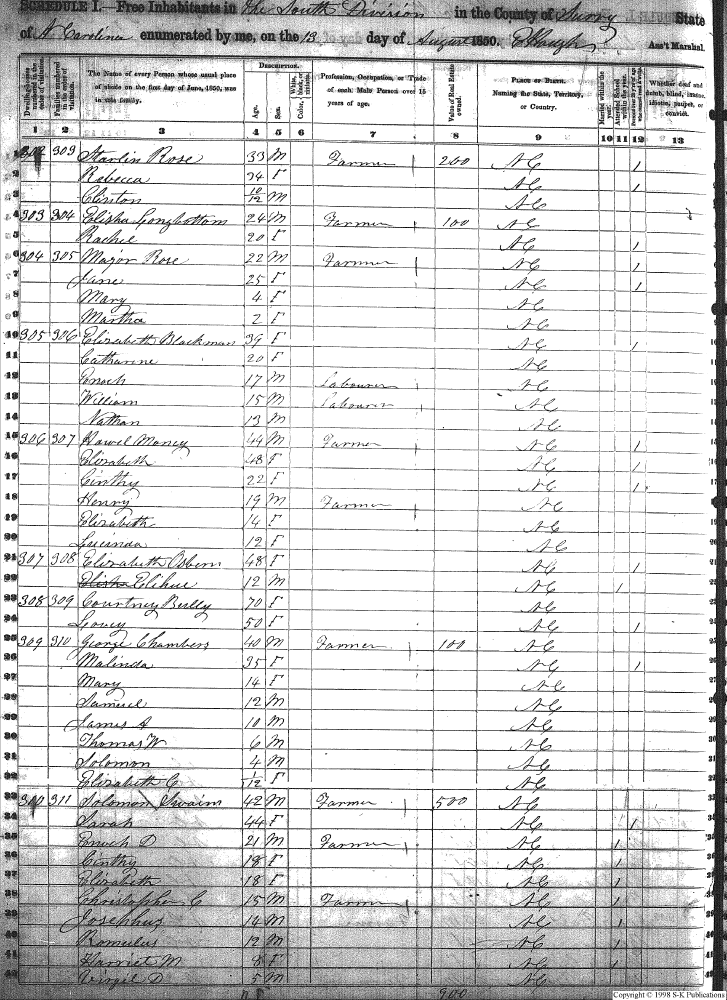 SCHEDULE I.—Free Inhabitants in The South Division in the County of Surry State
of N. Carolina enumerated by me, on the 13 day of August 1850. Ass't Marshal.
Dwelling-houses numbered in the order of visitation.
Families numbered in the order of visitation.
The Name of every Person whose usual place of abode on the first day of June, 1850, was in this family.
Description.
Age.
Sex.
White, black, or mulatto.
Color,
Profession, Occupation, or Trade of each Male Person over 15 years of age.
Value of Real Estate owned.
Place of Birth.
Naming the State, Territory, or Country.
Married within the year.
Whether deaf and dumb, blind, insane, idiotic, pauper, or convict.
1 2 3 4 5 6 7 8 9 10 11 12 13
1 302 303 Starlin Rose 33 M Farmer 200 NC 1
2 Rebecca 34 F NC 1
3 Clinton 10/12 M NC
4 303 304 Elisha Longbottom 24 M Farmer 100 NC
5 Rachel 20 F NC 1
6 304 305 Major Rose 22 M Farmer NC 1
7 Jane 25 F NC 1
8 Mary 4 F NC
9 Martha 2 F NC
10 305 306 Elizabeth Blackman 39 F NC 1
11 Catharine 20 F NC
12 Enoch 17 M Labourer NC
13 William 15 M Labourer NC
14 Nathan 13 M NC
15 306 307 Hawel Money 44 M Farmer NC 1
16 Elizabeth 48 F NC 1
17 Cinthy 22 F NC 1
18 Henry 19 M Farmer NC
19 Elizabeth 14 F NC
20 Lucinda 12 F NC
21 307 308 Elizabeth Osborn 48 F NC 1
22 Elisha Elihue 12 M NC 1
23 308 309 Courtney Bully 70 F NC
24 Lovey 50 F NC 1
25 309 310 George Chambers 40 M Farmer 100 NC
26 Malinda 35 F NC 1
27 Mary 14 F NC
28 Samuel 12 M NC
29 James A 10 M NC
30 Thomas W 6 M NC
31 Solomon 4 M NC
32 Elizabeth C 1/12 F NC
33 310 311 Solomon Swaim 42 M Farmer 500 NC
34 Sarah 44 F NC 1
35 Enoch D 21 M Farmer NC 1
36 Cinthy 18 F NC 1
37 Elizabeth 18 F NC 1
38 Christopher C 15 M Farmer NC 1
39 Josephus 14 M NC 1
40 Romulus 12 M NC 1
41 Harriet M 8 F NC 1
42 Virgil D 5 M NC
900
Copyright © 1998 S-K Publications